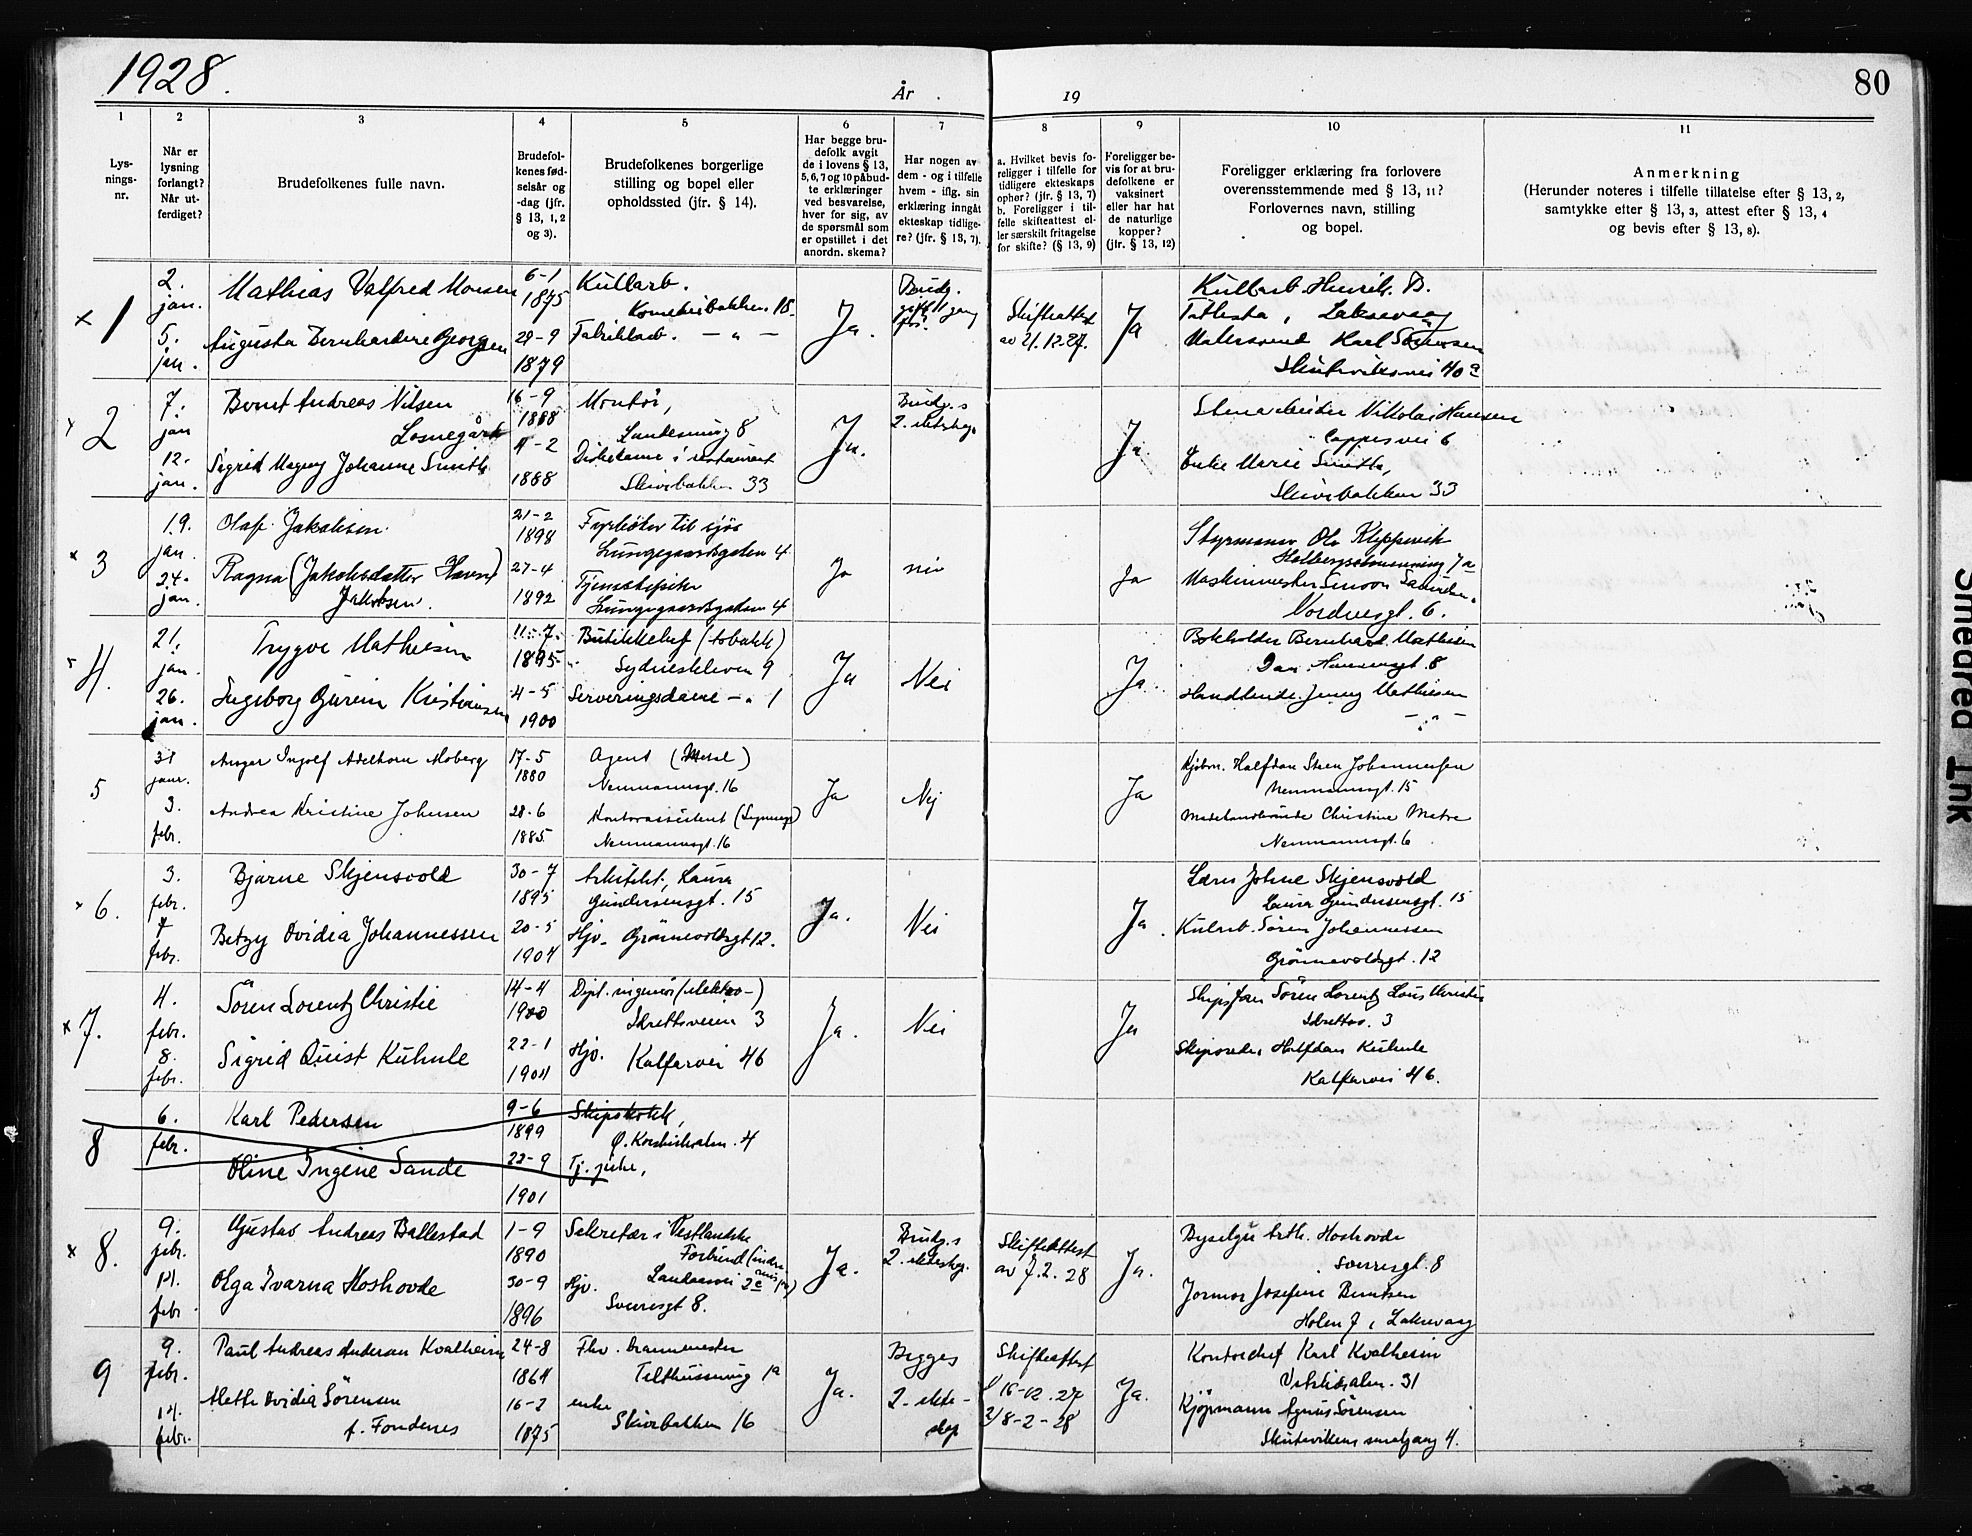 1928.
År . 19
80
1 2 3 4 5 6 7 8 9 10 11
Lys-
nings-
nr.
Når er
lysning
forlangt?
Når ut-
ferdiget?
Brudefolkenes fulle navn.
Brudefol-
kenes fød-
selsår og
-dag (jfr.
§ 13, 1, 2
og 3).
Brudefolkenes borgerlige
stilling og bopel eller
opholdssted (jfr. § 14).
Har begge bru-
defolk avgit
de i lovens § 13,
5, 6, 7 og 10 påbud-
te erklæringer
ved besvarelse,
hver for sig, av
de spørsmål som
er opstillet i det
anordn. skema?
Har nogen av
dem - og i tilfelle
hvem - iflg. sin
erklæring inngåt
ekteskap tidlige-
re? (jfr. § 13, 7).
a. Hvilket bevis fo-
religger i tilfelle for
tidligere ekteskaps
ophør? (jfr. § 13, 7)
b. Foreligger i til-
felle skifteattest el-
ler særskilt fritagelse
for skifte? (§ 13, 9)
Foreligger be-
vis for at bru-
defolkene er
vaksinert
eller har hat
de naturlige
kopper?
(jfr. § 13, 12)
Foreligger erklæring fra forlovere
overensstemmende med § 13, 11?
Forlovernes navn, stilling
og bopel.
Anmerkning
(Herunder noteres i tilfelle tillatelse efter § 13, 2,
samtykke efter § 13, 3, attest efter § 13, 4
og bevis efter § 13, 8).
x 1
2.
jan.
5.
jan.
Mathias Valfred Monsen
Augusta Bernhardine Georgsen
6-1
1875
29-9
1879
Kullarb.
18.
Fabrikkarb. — " —
Ja.
Brudg.
gift 1 gang
før.
Skifteattest
av 21.12.27.
Ja
Kullarb. Henrik B.
Laksevaag
Karl Sørensen
Skuteviksvei 40a
x 2
7.
jan
12.
jan.
Bernt Andreas Nilsen
Losnegård
Sigrid Magny Johanne Smith
16-9
1888
4-2
1888
Montør,
8
i restaurant
Skivebakken 33
Ja.
Brudg.s
2. ekteskap
Ja.
Nikolai Hansen
Cappesvei 6
Enke Marie Smith,
Skivebakken 33
x 3
19.
jan.
24.
jan.
Olaf Jakobsen.
Ragna (Jakobsdatter Havn)
Jakobsen.
21-2
1898
27-4
1892
Fyrbøter til sjøs
Lungegaardsgaten 4
Lungegaardsgaten 4
Ja
nei
Ja
Styrmann Ole Kleppevik
Holbergsalmenning 7a
Maskinmester
6.
x 4.
21.
jan.
26.
jan.
Trygve Mathiesen
Ingeborg Gurine Kristiansen
11-7.
1895
4-5
1900
Butikkchef (tobakk)
Sydneskleven 9
Serveringsdame — " 1
Ja
Nei
Ja.
Bokholder Bernhard Mathiesen
Dan. Hansensgt. 8
Handlende Jenny Mathiesen
— " —
5
31
janr.
3.
febr.
Ansgar Ingolf Adelhorn Moberg
Andrea Kristine Johnsen
17-5
1880
28-6
1885.
Agent
Neumannsgt. 16
Kontorassistent
Neumannsgt. 16
Ja
Nej
Ja
Kjøbm. Halfdan Steen Johannessen
Neumannsgt. 15
Christine Matre
Neumannsgt. 6
x 6.
3.
febr.
7
febr.
Bjarne Skjensvold
Betzy Ovidia Johannessen
30-7
1895
20-5
1904
Arkitekt, Laura
Gundersensgt. 15
Hjv. Grønnevoldsgt 12.
Ja.
Nei
Ja.
Johne Skjensvold
Laura Gundersensgt. 15
Søren Johannessen
Grønnevoldsgt. 12
x 7.
4.
febr.
8.
febr.
Søren Lorentz Christie
Sigrid Quist Kuhnle
14-4
1900
22-1
1904
Dipl. ingeniør (elektro-)
Idrettsveien 3
Hjv. Kalfarvei 46
Ja.
Nei
Ja
Søren Lorentz Christie
Idrettsv. 3
Skipsreder Halfdan Kuhnle
Kalfarvei 46.
8
6.
febr.
Karl Pedersen
Oline Ingine Sande
9-6
1899
22-9
1901
Skipskokk,
4
Tj. pike,
x 8.
9.
febr.
14.
febr
Gustav Andreas Ballestad
Olga Ivarna Hoshovde
1-9
1890
30-9
1896
Sekretær i Vestlandske
Forbund
Landaasvei
Hjv.
Sverresgt 8.
Ja.
Brudg.s
2. ekteskap.
Skifteattest
av 7.2.28
Ja.
Arth. Hoshovde
Sverresgt. 8
Josefine Berntsen
Holen 7, Laksevaag
9
9.
febr.
14.
febr.
Paul Andreas Andersen Kvalheim
Mette Ovidia Sørensen
f. Fondenes
24-8
1864
16-2
1875
Fhv. brannmester
1a
enke
Skivebakken 16
Ja.
Begges
2. ekte-
skap
Skifteattest
1/ 16-12.27
2/ 8-2-28
Ja.
Kontorchef Karl Kvalheim
31
Kjøpmann Agnus Sørensen
Skutevikens smalgang 4.
Smeared Ink